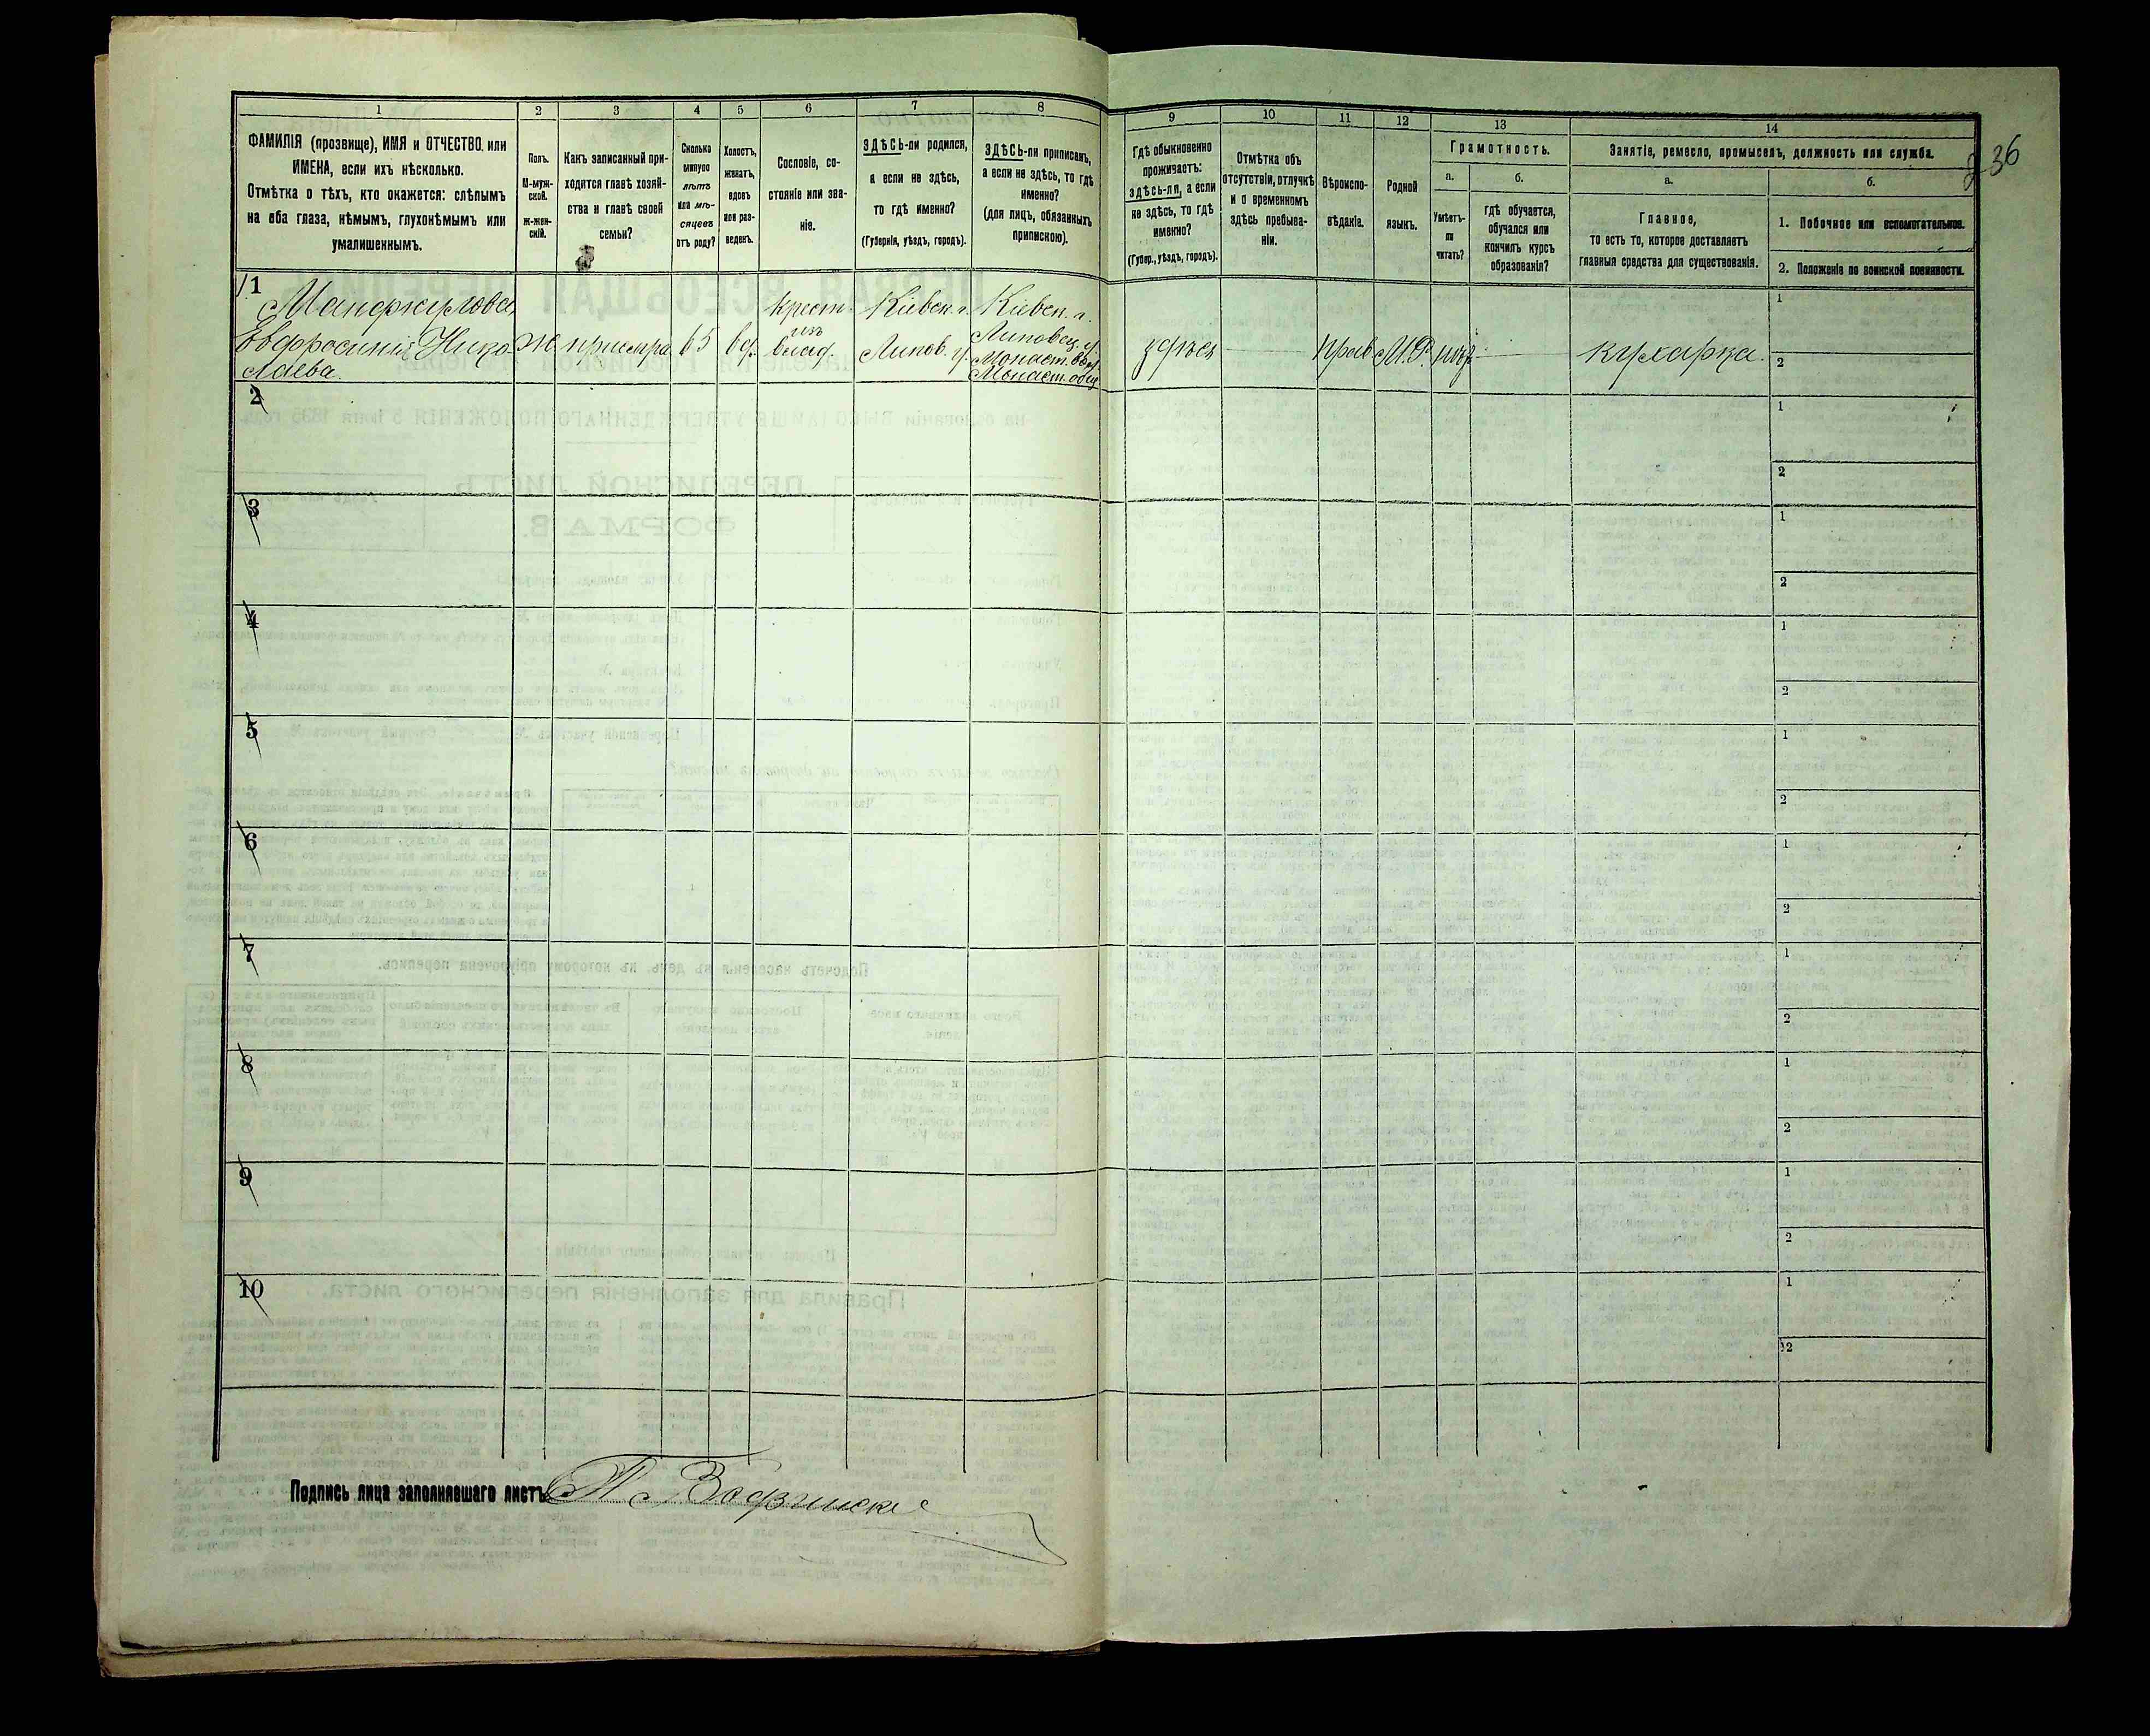 1
2
3
4
5
6
7
8
9
10
11
12
13
14
ФАМИЛІЯ (прозвище), ИМЯ и ОТЧЕСТВО или
ИМЕНА, если ихъ нѣсколько.
Отмѣтка о тѣхъ, кто окажется: слѣпымъ
на оба глаза, нѣмымъ, глухонѣмымъ или
умалишеннымъ.
Полъ.
М-муж-
ской.
ж-жен-
скій.
Какъ записанный при-
ходится главѣ хозяй-
ства и главѣ своей
семьи?
Сколько
минуло
лѣтъ
или мѣ-
сяцевъ
отъ роду?
Холостъ,
женатъ,
вдовъ
или раз-
веденъ.
Сословіе, со-
стояніе или зва-
ніе.
ЗДѢСЬ-ли родился,
а если не здѣсь,
то гдѣ именно?
(Губернія, уѣздъ, городъ).
ЗДѢСЬ-ли приписанъ,
а если не здѣсь, то гдѣ
именно?
(для лицъ, обязанныхъ
припискою).
Гдѣ обыкновенно
проживаетъ:
здѣсь-ли, а если
не здѣсь, то гдѣ
именно?
(Губер., уѣздъ, городъ).
Отмѣтка объ
отсутствіи, отлучкѣ
и о временномъ
здѣсь пребыва-
ніи.
Вѣроиспо-
вѣданіе.
Родной
языкъ.
Грамотность.
а.
б.
Умѣетъ-
ли
читать?
гдѣ обучается,
обучался или
кончилъ курсъ
образованія?
Занятіе, ремесло, промыселъ, должность или служба.
а.
б.
Главное,
то есть то, которое доставляетъ
главныя средства для существованія.
1. Побочное или вспомогательное.
2. Положеніе по воинской повинности.
36
1
Евфросинія Нико-
лаева
Ж
65
вд.
Крест.
изъ
влад.
Кіевск. г.
Липов. у.
Кіевск. г.
Липовец. у.
Монаст. вол.
Монаст. общ.
здѣсь
Прав
М.Р.
кухарка.
1
2
2
1
2
3
1
2
4
1
2
5
1
2
6
1
2
7
1
2
8
1
2
9
1
2
10
1
2
Подпись лица заполнявшаго листъ